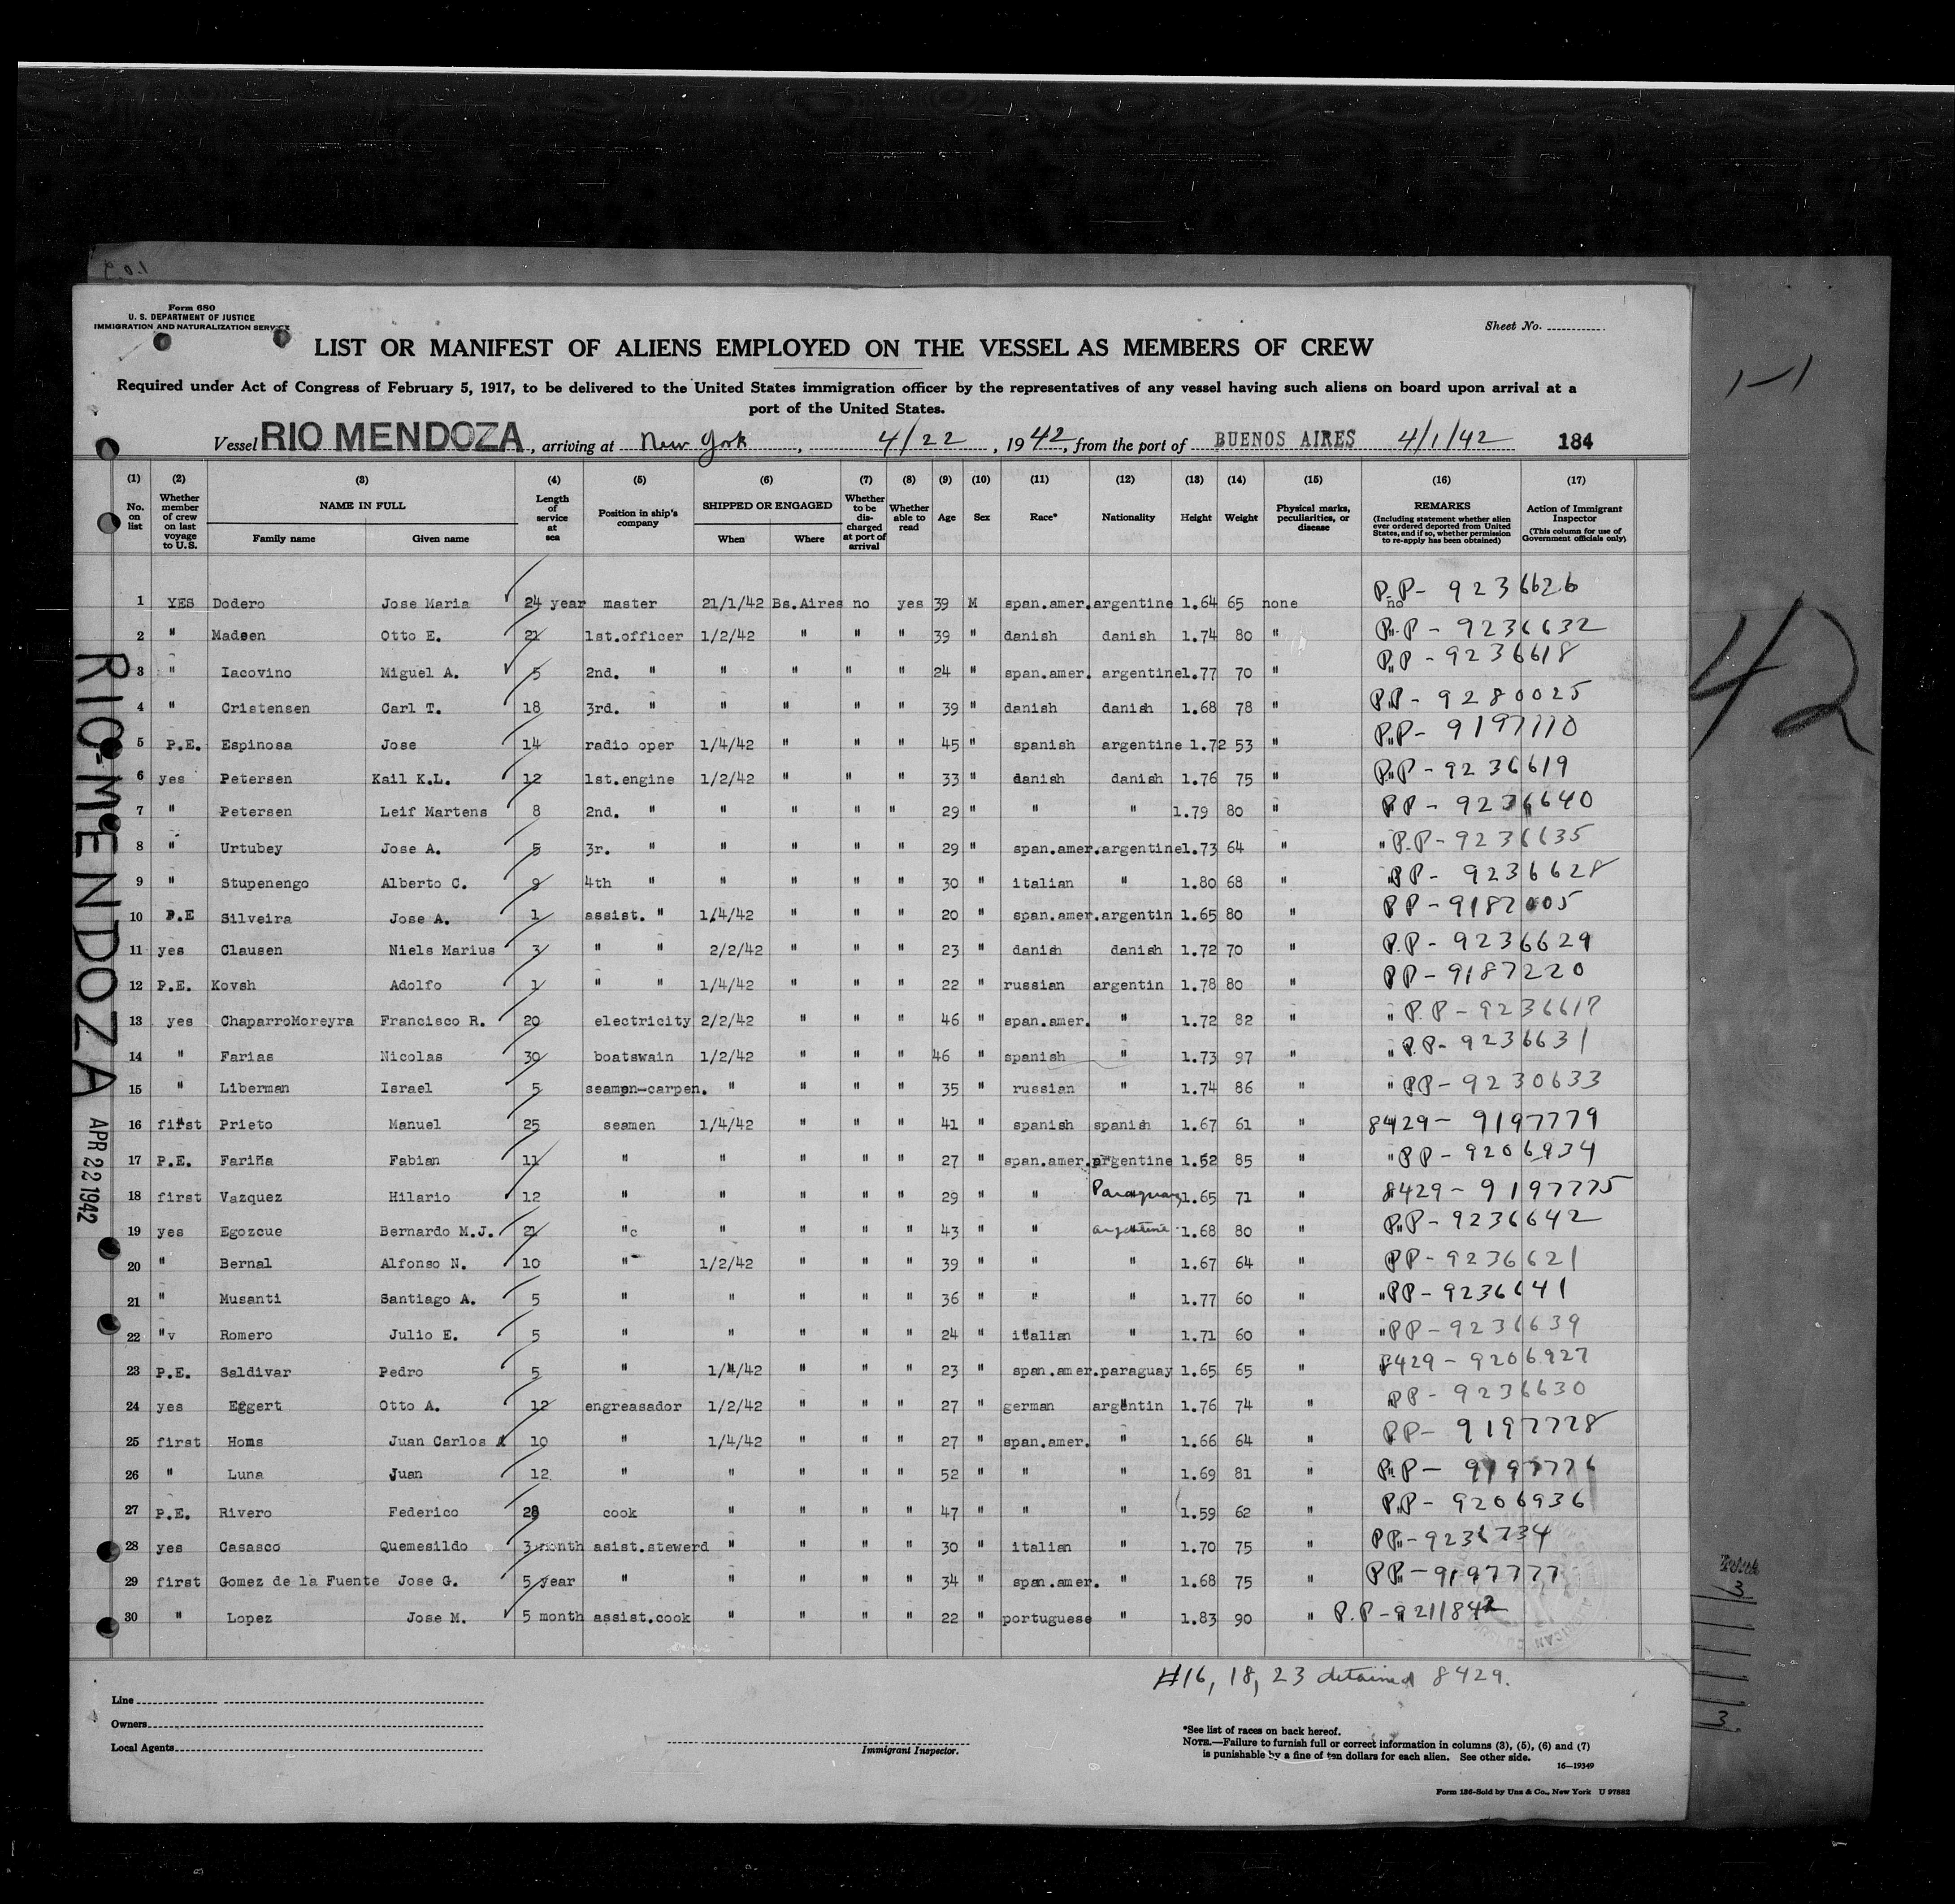 Form 680
U. S. DEPARTMENT OF JUSTICE
IMMIGRATION AND NATURALIZATION SERVICE
Sheet No.
LIST OR MANIFEST OF ALIENS EMPLOYED ON THE VESSEL AS MEMBERS OF CREW
Required under Act of Congress of February 5, 1917, to be delivered to the United States immigration officer by the representatives of any vessel having such aliens on board upon arrival at a
port of the United States.
Vessel RIO MENDOZA, arriving at New York, 4/22, 1942, from the port of BUENOS AIRES 4/1/42 184
(1) No. on list (2) Whether member of crew on last voyage to U.S. (3) NAME IN FULL Family name Given name (4) Length of service at sea (5) Position in ship's company (6) SHIPPED OR ENGAGED When Where (7) Whether to be discharged at port of arrival (8) Whether able to read (9) Age (10) Sex (11) Race* (12) Nationality (13) Height (14) Weight (15) Physical marks, peculiarities, or disease (16) REMARKS (Including statement whether alien ever ordered deported from United States, and if so, whether permission to re-apply has been obtained) (17) Action of Immigrant Inspector (This column for use of Government officials only)
1 YES Dodero Jose Maria 24 year master 21/1/42 Bs.Aires no yes 39 M span.amer. argentine 1.64 65 none no P.P- 9236626
2 " Madsen Otto E. 21 1st.officer 1/2/42 " " " 39 " danish danish 1.74 80 " " P.P - 9236632
3 " Iacovino Miguel A. 5 2nd. " " " " " 24 " span.amer. argentine 1.77 70 " " P.P - 9236618
4 " Cristensen Carl T. 18 3rd. " " " " " 39 " danish danish 1.68 78 " " PP - 9280025
5 P.E. Espinosa Jose 14 radio oper 1/4/42 " " " 45 " spanish argentine 1.72 53 " " P.P- 9197710
6 yes Petersen Kail K.L. 12 1st.engine 1/2/42 " " " 33 " danish danish 1.76 75 " " P.P - 9236619
7 " Petersen Leif Martens 8 2nd. " " " " " 29 " " " 1.79 80 " " PP - 9236640
8 " Urtubey Jose A. 5 3r. " " " " " 29 " span.amer. argentine 1.73 64 " " P.P - 9236635
9 " Stupenengo Alberto C. 9 4th " " " " " 30 " italian " 1.80 68 " " PP - 9236628
10 P.E Silveira Jose A. 1 assist. " 1/4/42 " " " 20 " span.amer. argentin 1.65 80 " PP - 9182005
11 yes Clausen Niels Marius 3 " " 2/2/42 " " " 23 " danish danish 1.72 70 " " P.P - 9236629
12 P.E. Kovsh Adolfo 1 " " 1/4/42 " " " 22 " russian argentin 1.78 80 " " PP - 9187220
13 yes ChaparroMoreyra Francisco R. 20 electricity 2/2/42 " " " 46 " span.amer. " 1.72 82 " " P.P - 9236617
14 " Farias Nicolas 30 boatswain 1/2/42 " " " 46 " spanish " 1.73 97 " " P.P- 9236631
15 " Liberman Israel 5 seamen-carpen. " " " " 35 " russian " 1.74 86 " " PP - 9230633
16 first Prieto Manuel 25 seamen 1/4/42 " " " 41 " spanish spanish 1.67 61 " 8429 - 9197779
17 P.E. Fariña Fabian 11 " " " " " 27 " span.amer. argentine 1.52 85 " " PP - 9206934
18 first Vazquez Hilario 12 " " " " " 29 " " Paraguay 1.65 71 " 8429 - 9197775
19 yes Egozcue Bernardo M.J. 21 "c " " " " 43 " " argentine 1.68 80 " " P.P - 9236642
20 " Bernal Alfonso N. 10 " 1/2/42 " " " 39 " " " 1.67 64 " " PP - 9236621
21 " Musanti Santiago A. 5 " " " " " 36 " " " 1.77 60 " " PP - 9236641
22 "v Romero Julio E. 5 " " " " " 24 " italian " 1.71 60 " " PP - 9236639
23 P.E. Saldivar Pedro 5 " 1/4/42 " " " 23 " span.amer. paraguay 1.65 65 " 8429 - 9206927
24 yes Eggert Otto A. 12 engreasador 1/2/42 " " " 27 " german argentin 1.76 74 " " PP - 9236630
25 first Homs Juan Carlos A 10 " 1/4/42 " " " 27 " span.amer. " 1.66 64 " PP- 9197728
26 " Luna Juan 12 " " " " " 52 " " " 1.69 81 " " P.P - 9197776
27 P.E. Rivero Federico 28 cook " " " " 47 " " " 1.59 62 " " P.P - 9206936
28 yes Casasco Quemesildo 3 month asist.stewerd " " " " 30 " italian " 1.70 75 " " PP - 9236734
29 first Gomez de la Fuente Jose G. 5 year " " " " " 34 " span.amer. " 1.68 75 " " PP - 9197777
30 " Lopez Jose M. 5 month assist.cook " " " " 22 " portuguese " 1.83 90 " P.P - 9211842
#16, 18, 23 detained 8429.
Line
Owners
Local Agents
Immigrant Inspector.
*See list of races on back hereof.
NOTE.—Failure to furnish full or correct information in columns (3), (5), (6) and (7)
is punishable by a fine of ten dollars for each alien. See other side.
16—19349
Form 186-Sold by Unz & Co., New York U 97882
RIO-MENDOZA
APR 22 1942
1-1
42
3
3